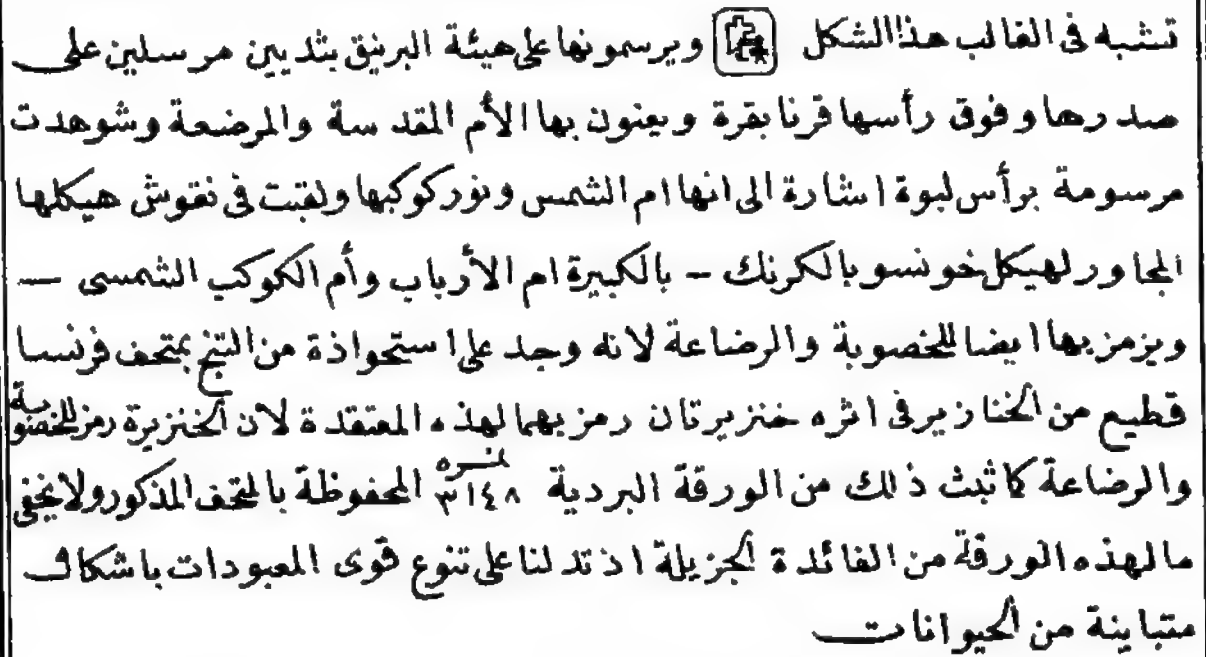 تشبه فى الغالب هذا الشكل ويرسمونها على هيئة البرنيق بثديين مرسلين على
صدرها وفوق رأسها قرنا بقرة ويعنون بها الأم المقدسة والمرضعة وشوهدت
مرسومة برأس لبوة اشارة الى انها ام الشمس ونور كوكبها ولقبت فى نقوش هيكلها
المجاور لهيكل خونسو بالكرنك - بالكبيرة ام الأرباب وأم الكوكب الشمسى -
ويزمز بها ايضا للخصوبة والرضاعة لانه وجد على استحواذة من التبنج بمتحف فرنسا
قطيع من الخنازير فى اثره خنزيرتان رمز بهما لهذه المعتقدة لان الخنزيرة رمز للخصوبة
والرضاعة كما ثبث ذلك من الورقة البردية نمرة ٣١٤٨ المحفوظة بالمتحف المذكور ولا يخفى
ما لهذه الورقة من الفائدة الجزيلة اذ تدلنا على تنوع قوى المعبودات باشكال
متباينة من الحيوانات